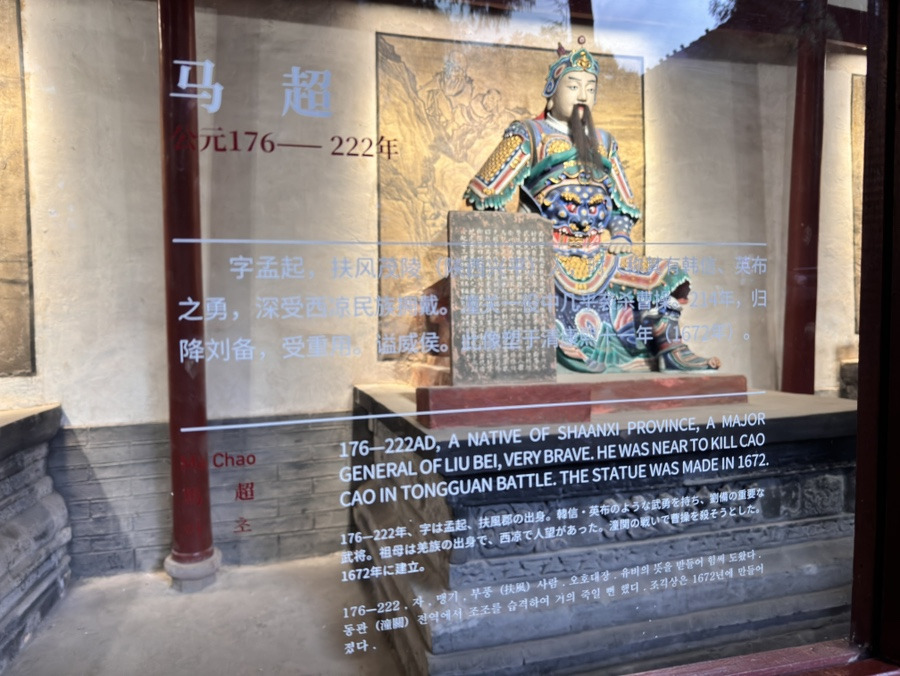 马 超
公元176—— 222年
字孟起，扶风茂陵 有韩信、英布
之勇，深受西凉民族拥戴。潼关一役中几乎致杀曹操。214年，归
降刘备，受重用。谥威侯。此像塑于清 年（1672年）。
Chao
超
176—222AD, A NATIVE OF SHAANXI PROVINCE, A MAJOR
GENERAL OF LIU BEI, VERY BRAVE. HE WAS NEAR TO KILL CAO
CAO IN TONGGUAN BATTLE. THE STATUE WAS MADE IN 1672.
176—222年、字は孟起、扶風郡の出身。韓信・英布のような武勇を持ち、劉備の重要な
武将。祖母は羌族の出身で、西凉で人望があった。潼関の戦いで曹操を殺そうとした。
1672年に建立。
176—222 . 자 , 맹기 . 부풍 (扶風) 사람 . 오호대장 . 유비의 뜻을 받들어 힘써 도왔다 .
동관 (潼關) 전역에서 조조를 습격하여 거의 죽일 뻔 했다 . 조각상은 1672년에 만들어
졌다 .